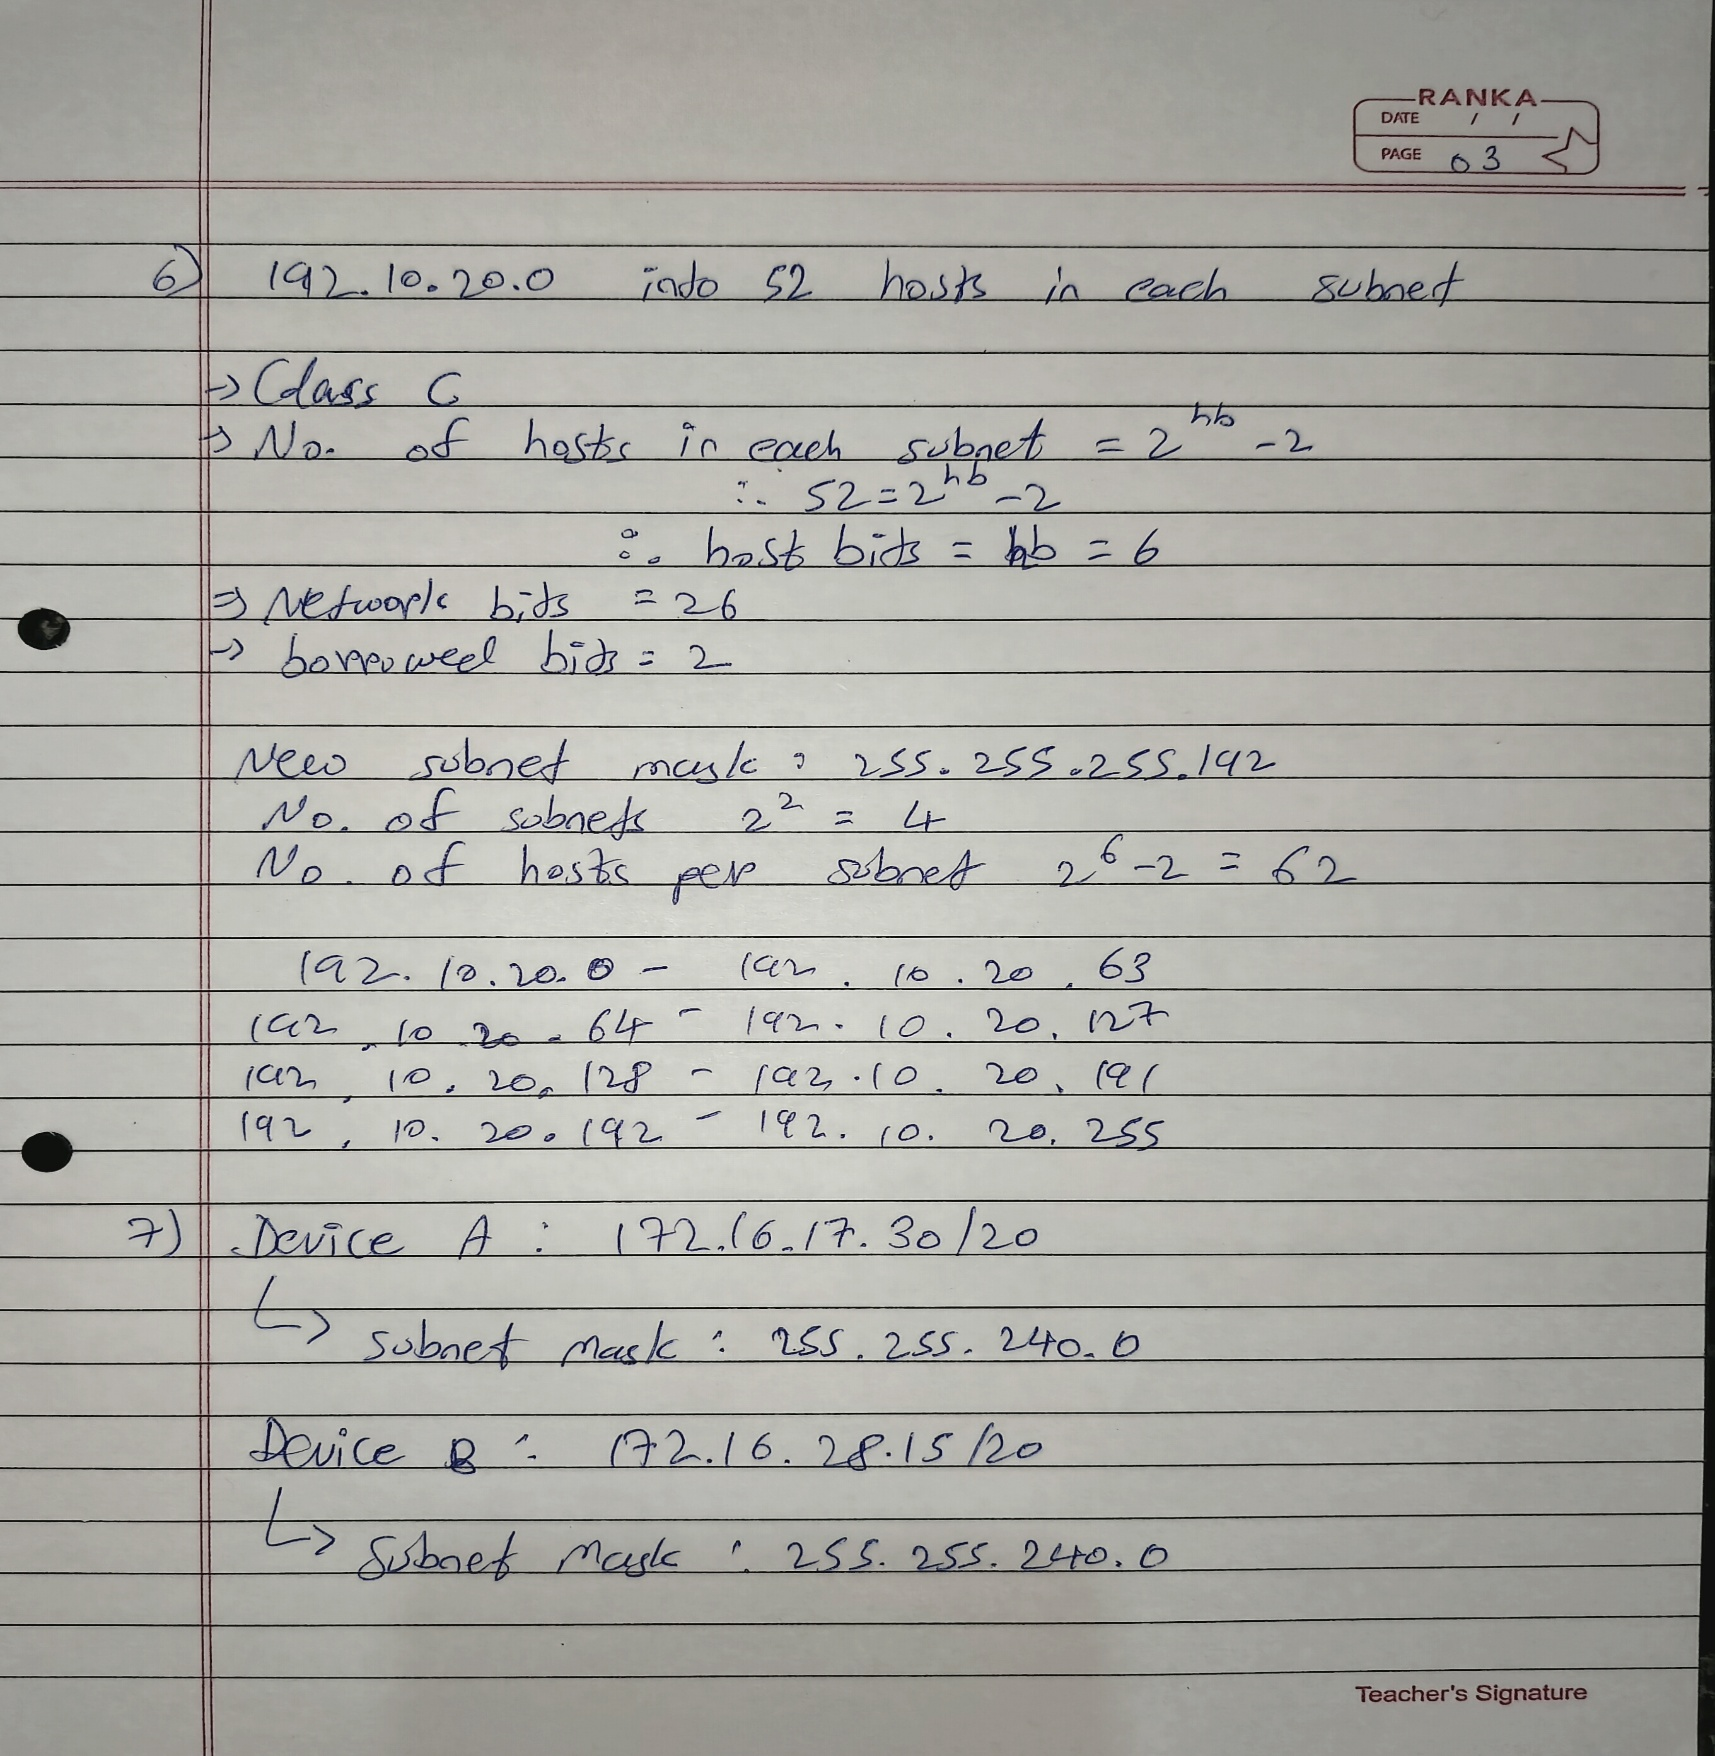 RANKA
DATE / /
PAGE 03
6) 192.10.20.0 into 52 hosts in each subnet
→ Class C
→ No. of hosts in each subnet = 2^hb - 2
∴ 52 = 2^hb - 2
∴ host bits = hb = 6
⇒ Network bits = 26
→ borrowed bits = 2
New subnet mask : 255.255.255.192
No. of subnets 2^2 = 4
No. of hosts per subnet 2^6 - 2 = 62
192.10.20.0 - 192.10.20.63
192.10.20.64 - 192.10.20.127
192.10.20.128 - 192.10.20.191
192.10.20.192 - 192.10.20.255
7) Device A : 172.16.17.30/20
↳ subnet mask : 255.255.240.0
Device B : 172.16.28.15/20
↳ Subnet Mask : 255.255.240.0
Teacher's Signature